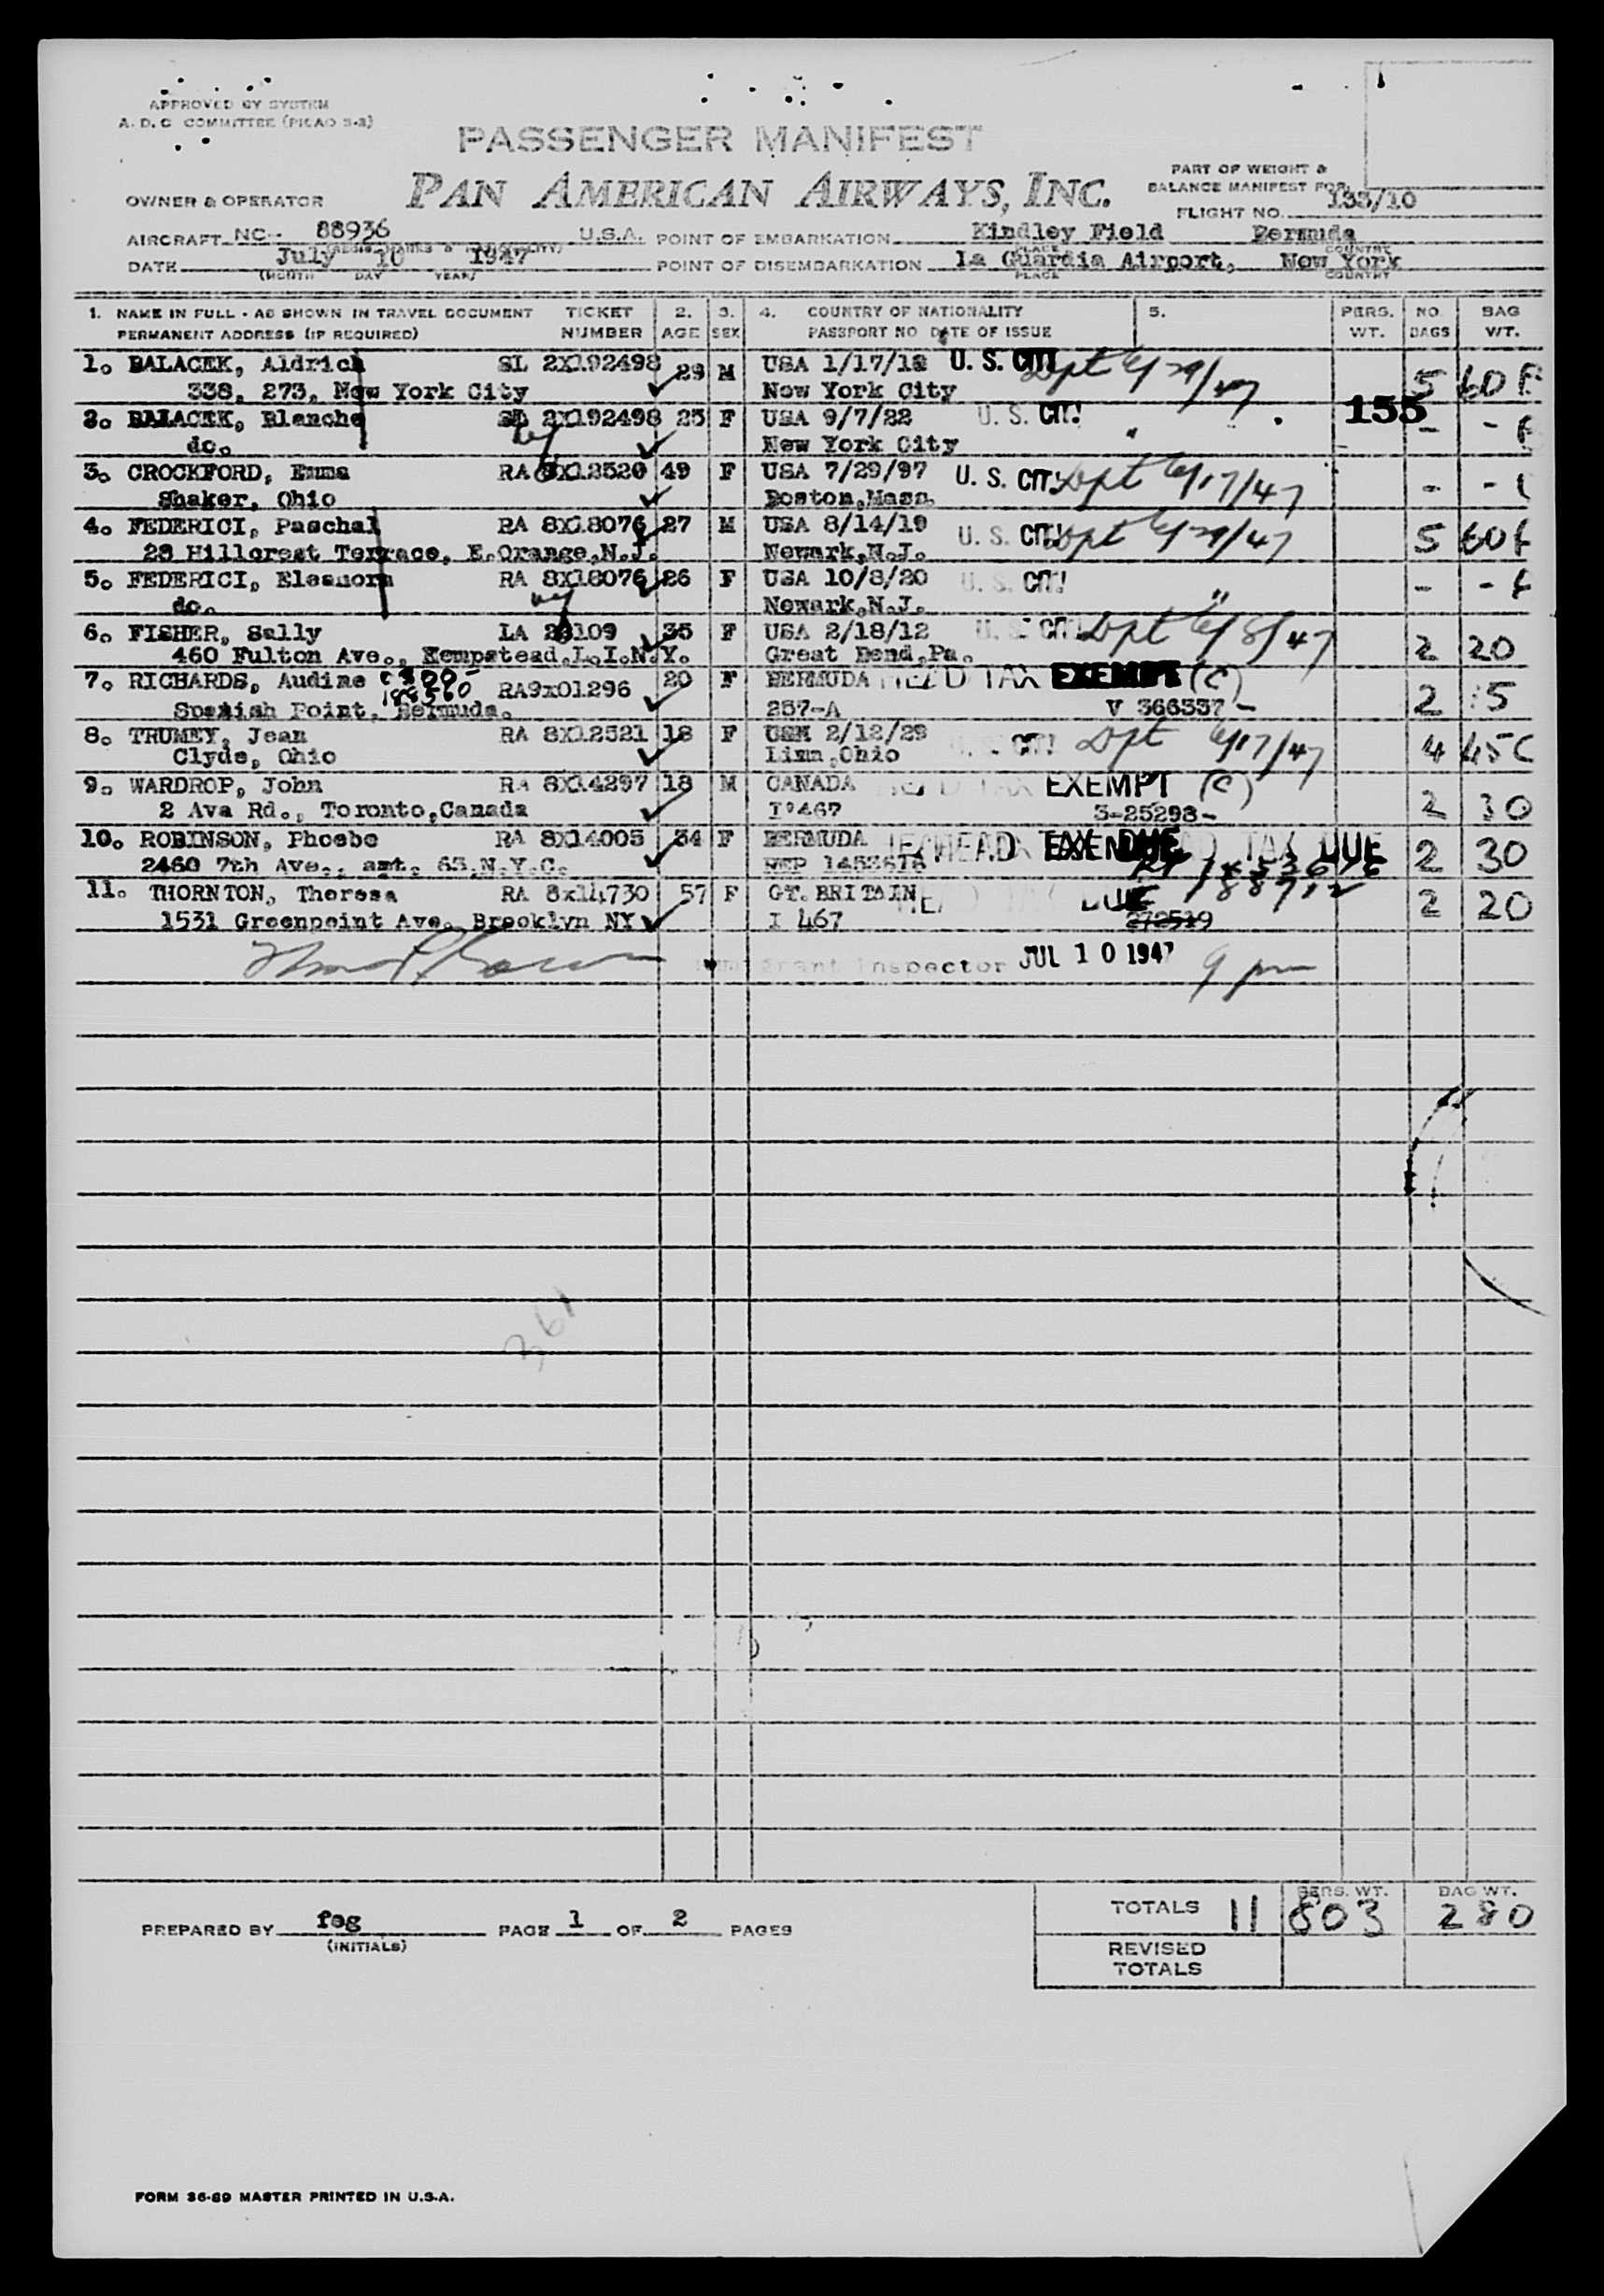 APPROVED BY SYSTEM
A. D. C COMMITTEE (PICAO 5-3)
PASSENGER MANIFEST
PAN AMERICAN AIRWAYS, INC.
PART OF WEIGHT &
BALANCE MANIFEST FOR
OWNER & OPERATOR
FLIGHT NO. 133/10
AIRCRAFT NC- 88936 U.S.A. POINT OF EMBARKATION Kindley Field Bermuda
PLACE COUNTRY
DATE July 10 1947 POINT OF DISEMBARKATION La Guardia Airport, New York
(MONTH DAY YEAR) PLACE COUNTRY
1. NAME IN FULL - AS SHOWN IN TRAVEL DOCUMENT TICKET 2. 3. 4. COUNTRY OF NATIONALITY 5. PERS. NO. BAG
PERMANENT ADDRESS (IF REQUIRED) NUMBER AGE SEX PASSPORT NO DATE OF ISSUE WT. BAGS WT.
1. BALACEK, Aldrich SL 2X192498 29 M USA 1/17/18 U. S. CIT! Dpt 6/29/47
338, 273, New York City New York City 5 60
2. BALACEK, Blanche SL 2X192498 25 F USA 9/7/22 U. S. CIT! " 155
do. New York City - -
3. CROCKFORD, Emma RA 8X12520 49 F USA 7/29/97 U. S. CIT! Dpt 6/17/47
Shaker, Ohio Boston,Mass. - -
4. FEDERICI, Paschal RA 8X18076 27 M USA 8/14/19 U. S. CIT! Dpt 6/29/47 5 60
28 Hillcrest Terrace, E.Orange,N.J. Newark,N.J.
5. FEDERICI, Eleanora RA 8X18076 26 F USA 10/8/20 U. S. CIT! " - -
do. Newark,N.J.
6. FISHER, Sally LA 109 35 F USA 2/18/12 U. S. CIT! Dpt 6/8/47
460 Fulton Ave., Hempstead,L.I.N.Y. Great Bend,Pa. 2 20
7. RICHARDS, Audine RA9x01296 20 F BERMUDA HEAD TAX EXEMPT (C)
Spanish Point, Bermuda. 257-A V 366537 - 2 5
8. TRUMEY, Jean RA 8X12521 18 F USA 2/12/29 U. S. CIT! Dpt 6/17/47 4 45
Clyde, Ohio Lima,Ohio
9. WARDROP, John RA 8X14297 18 M CANADA HEAD TAX EXEMPT (C)
2 Ava Rd., Toronto,Canada I 467 3-25298- 2 30
10. ROBINSON, Phoebe RA 8X14005 34 F BERMUDA HEAD TAX DUE
2460 7th Ave., apt. 63,N.Y.C. REP 1453676 2 30
11. THORNTON, Theresa RA 8x14730 57 F GT. BRITAIN HEAD TAX DUE 188712
1531 Greenpoint Ave. Brooklyn NY I 467 272519 2 20
Immigrant Inspector JUL 10 1947 9 pm
361
PERS. WT. BAG WT.
TOTALS 11 803 280
PREPARED BY feg PAGE 1 OF 2 PAGES
(INITIALS)
REVISED
TOTALS
FORM 36-69 MASTER PRINTED IN U.S.A.